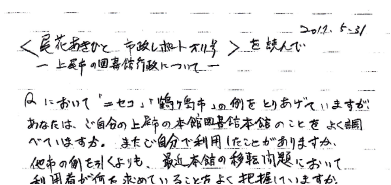 2017.5.31
<尾花あきひと 市政レポートオリ号>を読んで
ー上尾市の図書館行政についてー
Qにおいて「ニセコ」「鶴ヶ島市」の例をとりあげていますが
あなたは、ご自分の上尾市の本館図書館本館のことをよく調
べていますか。またご自分で利用したことがありますか、
他市の例を引くよりも、最近本館の移転問題において
利用者が何を求めていることをよく把握していますか。